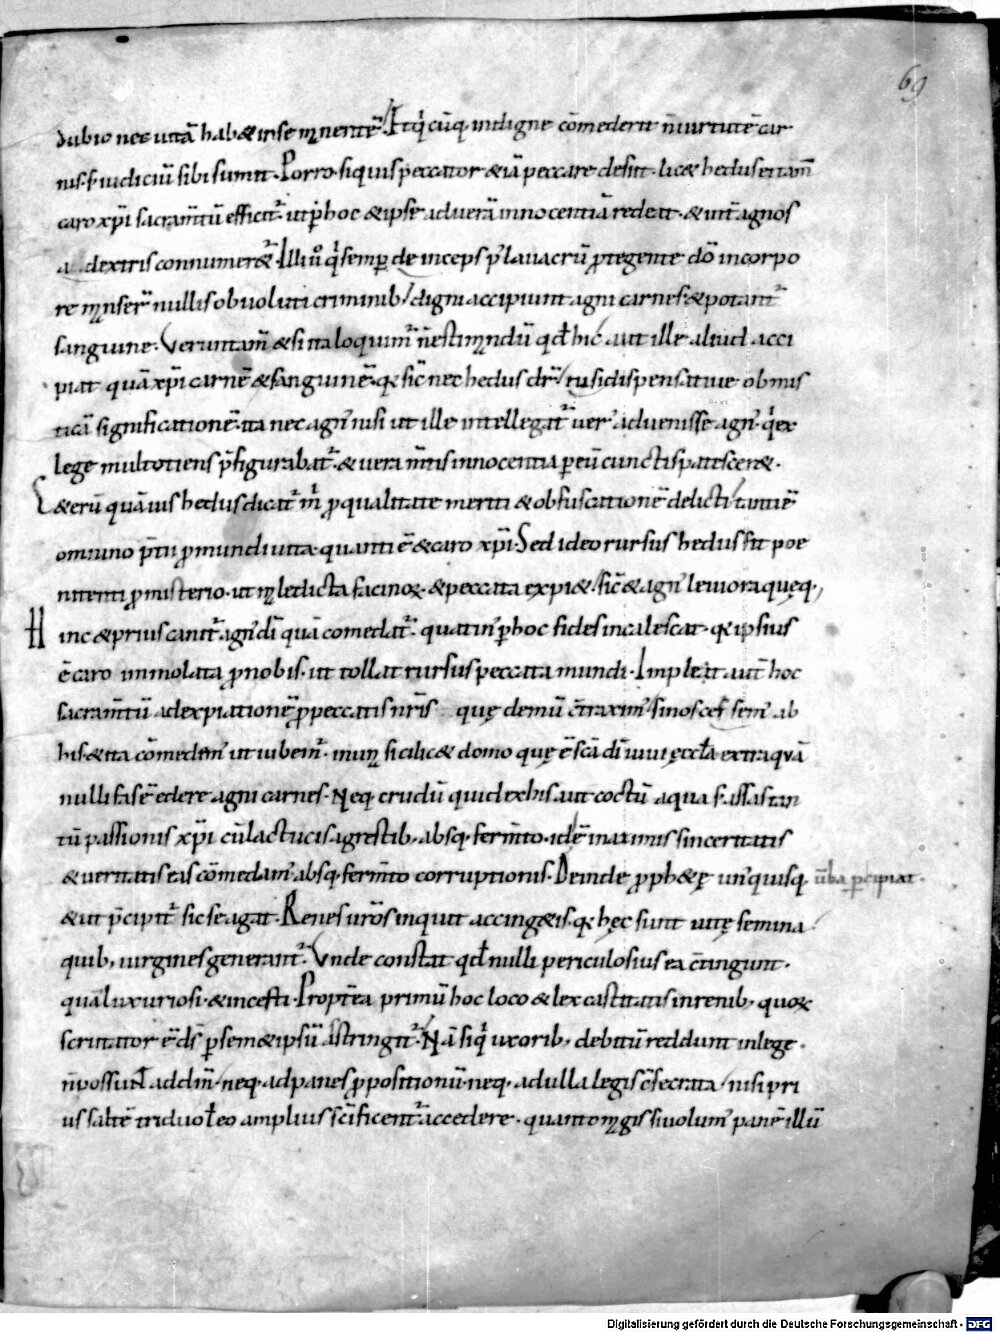 69
dubio nec uitā hab& in se manentē. At q̇ cūq; indigne cōmederit n̄ uirtutē car
nis. s; iudiciū sibi sumit. Porro si quis peccator & iā peccare desiit. lic& hedus et tam̄
caro xp̄i sacram̄tū efficit᷑. ut p̱ hoc & ipse ad uerā innocentiā redeat. & int̄ agnos
a dextris connumer&᷑. Illi u̇ qi semp̱ deinceps p̱ lauacrū p̱tegente dō in corpo
re manser̄ nullis obuoluti criminib; digni accipiunt agni carnes. & potant᷑
sanguine. Veruntam̄ & si ita loquimur̄ n̄ estimandū qđ hic aut ille aliud acci
piat quā xp̄i carnē & sanguinē. q; sic̄ nec hedus dr̄ rusi dispensatiue ob mis
ticā significationē. ita nec agn᷒ nisi ut ille intellegat᷑ uer᷒ aduenisse agn᷒. qi ex
lege multotiens p̄figurabat᷑. & uera mentis innocentia p̱ eū cunctis patescer&.
C&erū quāuis hedus dicat᷑ in̄ p̱ qualitate meriti & obfuscationē delicti tantū ē
omnino p̄tii p̱ mundi uita quanti ē & caro xp̄i. Sed ideo rursus hedus fit poe
nitenti p̱ misterio. ut maledicta facinoꝝ & peccata expi&. sic̄ & agn᷒ leuiora quęq;
Hinc & prius canit᷑ agn᷒ dī quā comedat᷑. quatin᷒ p̱ hoc fides incalescat. q; ipsius
ē caro immolata p̱ nobis. ut tollat rursus peccata mundi. Implest aut̄ hoc
sacram̄tū ad expiationē p̱ peccatis nr̄is quę demū c̄traxim᷒. si nos cess sem᷒ ab
his. & ita cōmedem᷒ ut iubem᷑. in una scilic& domo quę ē scā dī uiui ęccla extra quā
nulli fas ē edere agni carnes. Neq; crudū quid ex his aut coctū aqua s; assas tan
tū passionis xp̄i cū lactucis agrestib; absq; ferm̄to. id ē in azimis sinceritatis
& ueritatis eas cōmedam᷒ absq; ferm̄to corruptionis. Deinde p̱ph&ę un᷒quisq; uba p̱cipiat.
& ut p̄cipit᷑ sic se agat. Renes uros inquit accing&is. q; hęc sunt uitę semina
quib; uirgines generant᷑. Vnde constat qđ nulli periculosius ea c̄tingunt.
quā luxuriosi & incesti. Propt̄ea primū hoc loco & lex castitatis in renib; quoꝝ
scrutator ē ds̄ p̱ sem&ipsū astringit᷑. Nā si qi uxorib; debitū reddunt in lege
n̄ possunt ad dm̄ neq; ad panes p̱positionū neq; ad ulla legis c̄secrata. nisi pri
us saltē triduo ł eo amplius scificent᷑ accedere. quanto magis si uolum᷒ panē illū
Digitalisierung gefördert durch die Deutsche Forschungsgemeinschaft - DFG